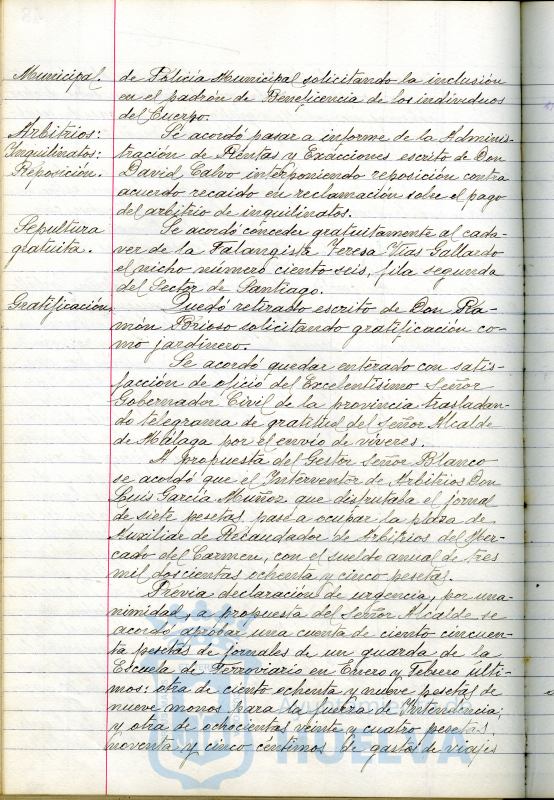 Municipal.
de Policía Municipal solicitando la inclusión
en el padrón de Beneficencia de los individuos
del Cuerpo.
Arbitrios:
Inquilinatos:
Reposición.
Se acordó pasar a informe de la Adminis-
tración de Rentas y Exacciones escrito de Don
David Calvo interponiendo reposición contra
acuerdo recaido en reclamación sobre el pago
del arbitrio de inquilinatos.
Sepultura
gratuita.
Se acordó conceder gratuitamente al cada-
ver de la Falangista Teresa Vias Gallardo
el nicho número ciento seis, fila segunda
del Sector de Santiago.
Gratificación.
Quedó retirado escrito de Don Ra-
món Borioso solicitando gratificación co-
mo jardinero.
Se acordó quedar enterado con satis-
facción de oficio del Excelentísimo Señor
Gobernador Civil de la provincia trasladan-
do telegrama de gratitud del Señor Alcalde
de Málaga por el envío de víveres.
A propuesta del Gestor Señor Blanco
se acordó que el Interventor de Arbitrios Don
Luis García Muñoz que disfrutaba el jornal
de siete pesetas pase a ocupar la plaza de
Auxiliar de Recaudador de Arbitrios del Mer-
cado del Carmen, con el sueldo anual de tres
mil doscientas ochenta y cinco pesetas.
Previa declaración de urgencia, por una-
nimidad, a propuesta del Señor Alcalde se
acordó aprobar una cuenta de ciento cincuen-
ta pesetas de jornales de un guarda de la
Escuela de Ferroviario en Enero y Febrero últi-
mos; otra de ciento ochenta y nueve pesetas de
nueve monos para la fuerza de Intendencia;
y otra de ochocientas veinte y cuatro pesetas,
noventa y cinco céntimos de gastos de viajes
HUELVA